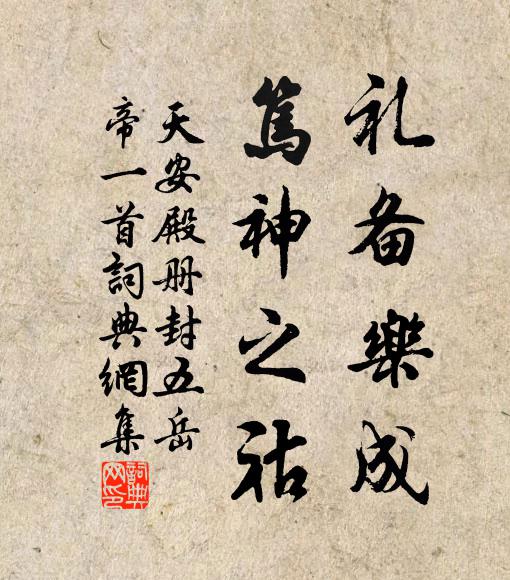 礼备樂成
篤神之祜
天安殿册封五岳
帝一首詞典網集
詞典
网印